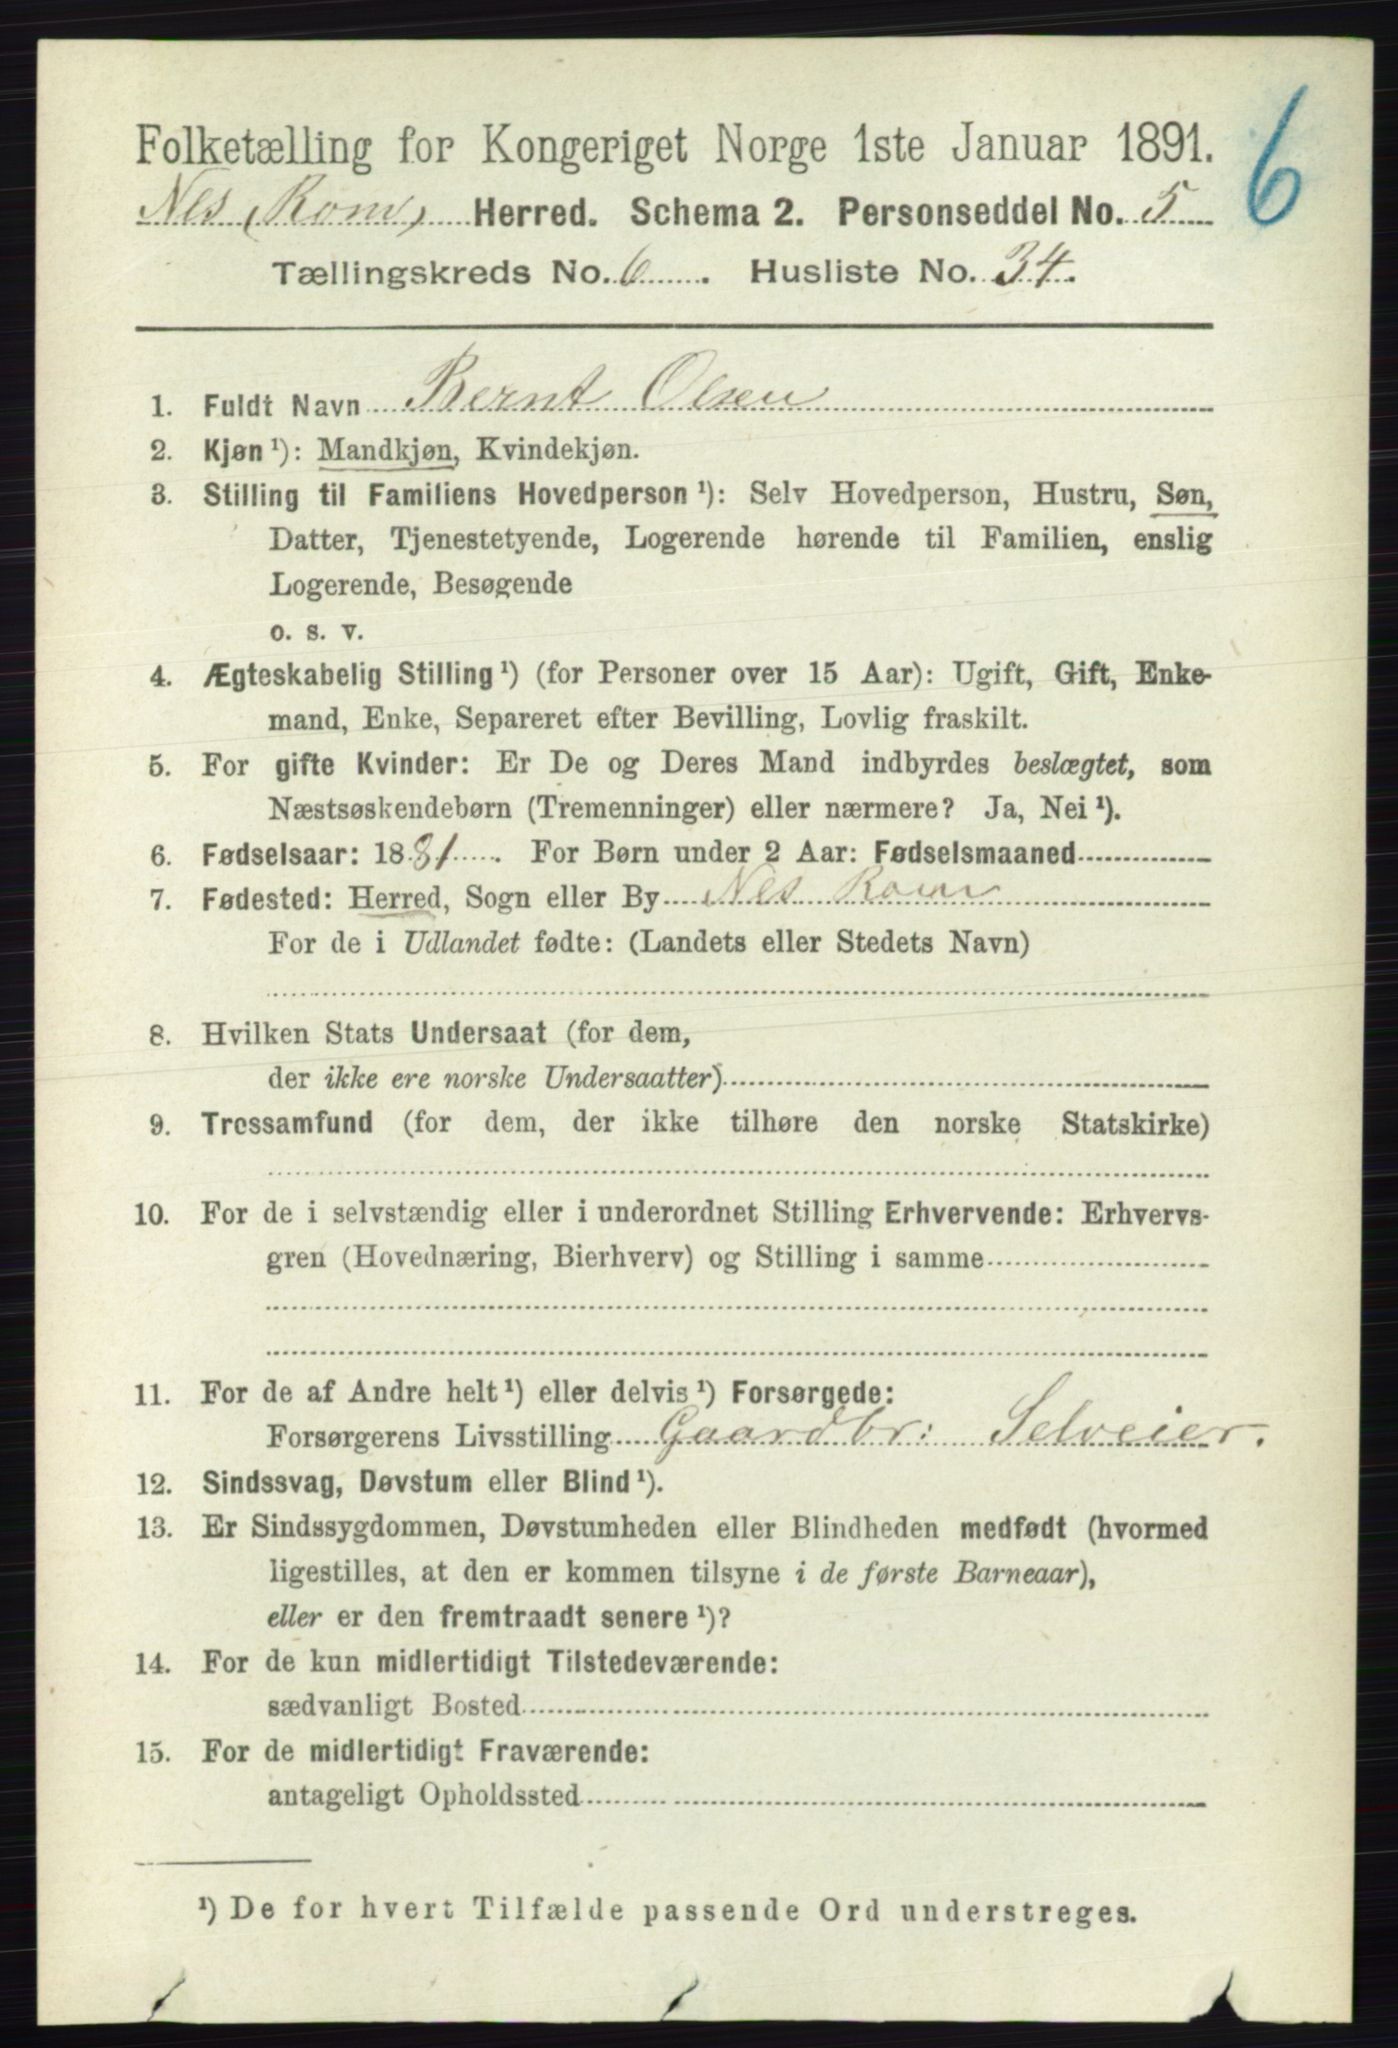 6
Folketælling for Kongeriget Norge 1ste Januar 1891.
Nes (Rom) Herred. Schema 2. Personseddel No. 5
Tællingskreds No. 6. Husliste No. 34.
1. Fuldt Navn Bernt Olsen
2. Kjøn ¹): Mandkjøn, Kvindekjøn.
3. Stilling til Familiens Hovedperson ¹): Selv Hovedperson, Hustru, Søn,
Datter, Tjenestetyende, Logerende hørende til Familien, enslig
Logerende, Besøgende
o. s. v.
4. Ægteskabelig Stilling ¹) (for Personer over 15 Aar): Ugift, Gift, Enke-
mand, Enke, Separeret efter Bevilling, Lovlig fraskilt.
5. For gifte Kvinder: Er De og Deres Mand indbyrdes beslægtet, som
Næstsøskendebørn (Tremenninger) eller nærmere? Ja, Nei ¹).
6. Fødselsaar: 1881. For Børn under 2 Aar: Fødselsmaaned
7. Fødested: Herred, Sogn eller By Nes Rom
For de i Udlandet fødte: (Landets eller Stedets Navn)
8. Hvilken Stats Undersaat (for dem,
der ikke ere norske Undersaatter)
9. Trossamfund (for dem, der ikke tilhøre den norske Statskirke)
10. For de i selvstændig eller i underordnet Stilling Erhvervende: Erhvervs-
gren (Hovednæring, Bierhverv) og Stilling i samme
11. For de af Andre helt ¹) eller delvis ¹) Forsørgede:
Forsørgerens Livsstilling Gaardbr: Selveier.
12. Sindssvag, Døvstum eller Blind ¹).
13. Er Sindssygdommen, Døvstumheden eller Blindheden medfødt (hvormed
ligestilles, at den er kommen tilsyne i de første Barneaar),
eller er den fremtraadt senere ¹)?
14. For de kun midlertidigt Tilstedeværende:
sædvanligt Bosted
15. For de midlertidigt Fraværende:
antageligt Opholdssted
¹) De for hvert Tilfælde passende Ord understreges.